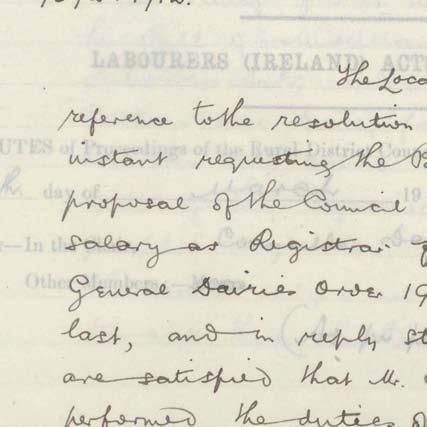 1912.
LABOURERS (IRELAND) ACTS
The Loca
reference to the resolution
UTES of Proceedings of the Rural District Coun
instant requesting the B
day of March 19
proposal of the Council
—In the
salary as Registrar
Other Members,—Messrs.
General Dairies Order 19
last, and in reply st
are satisfied that Mr.
performed the duties of